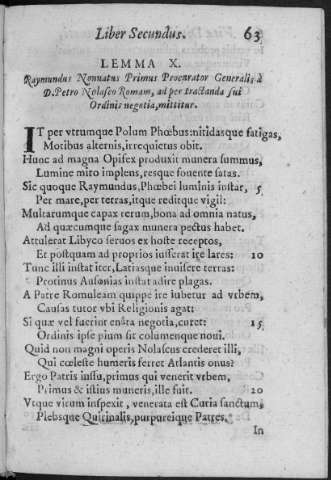 Liber Secundus. 63
LEMMA X.
Raymundus Nonnatus Primus Procurator Generalis à
D. Petro Nolasco Romam, ad per tractanda sui
Ordinis negotia, mittitur.
IT per vtrumque Polum Phœbus: nitidasque fatigas,
Motibus alternis, irrequietus obit.
Hunc ad magna Opifex produxit munera summus,
Lumine mito implens, resque fouente satas.
Sic quoque Raymundus, Phœbei luminis instar, 5
Per mare, per terras, itque reditque vigil:
Multarumque capax rerum, bona ad omnia natus,
Ad quæcumque sagax munera pectus habet.
Attulerat Libyco seruos ex hoste receptos,
Et postquam ad proprios iusserat ire lares: 10
Tunc illi instat iter, Latiasque inuisere terras:
Protinus Ausonias instat adire plagas.
A Patre Romuleam quippe ire iubetur ad vrbem,
Causas tutor vbi Religionis agat:
Si quæ vel fuerint enata negotia, curet: 15
Ordinis ipse pium sit columenque noui.
Quid non magni operis Nolascus crederet illi,
Qui cœleste humeris ferret Atlantis onus?
Ergo Patris iussu, primus qui venerit vrbem,
Primus & istius muneris, ille fuit. 20
Vtque vicum inspexit, venerata est Curia sanctum,
Plebsque Quirinalis, purpureique Patres.
In